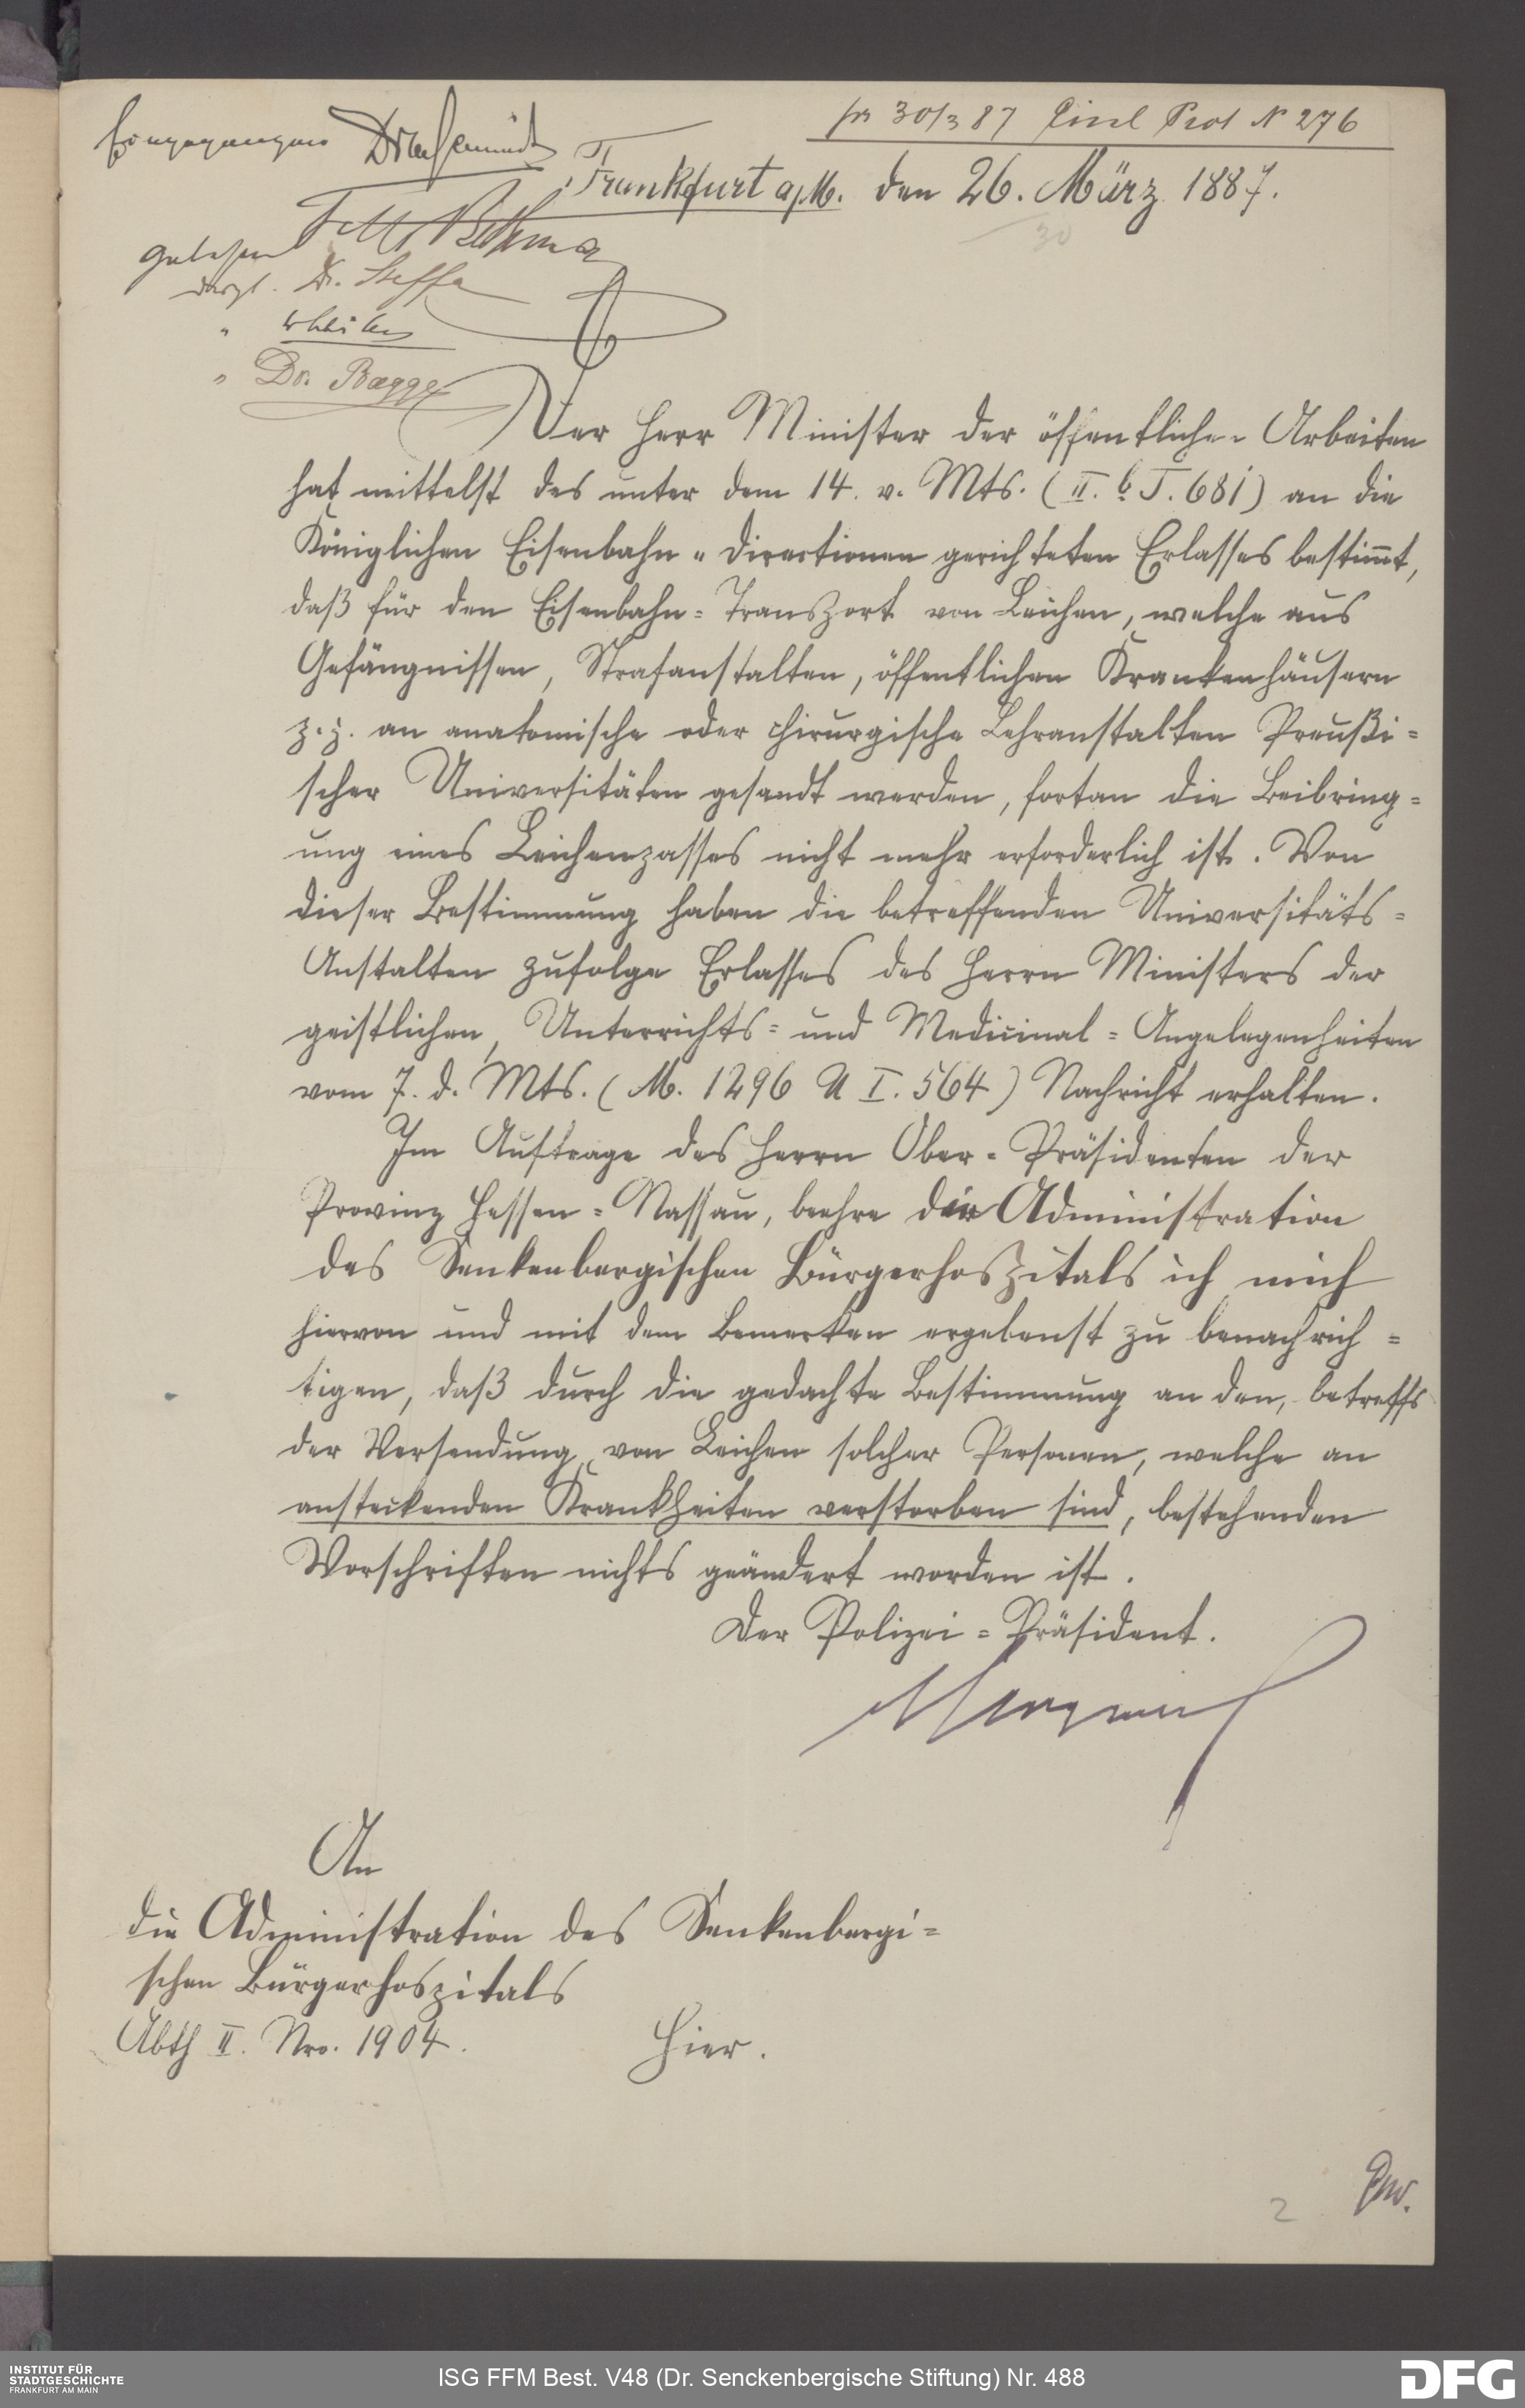 pr 30/3 87 Einl Prot N 276
Eingegangen Dr. Schmidt
Frankfurt a/M. den 26. März 1887.
30
gelesen
desgl. Dr. Steffa
"
" Dr. Bagge
Der Herr Minister der öffentlichen Arbeiten
hat mittelst des unter dem 14. v. Mts. (II. b. T. 681) an die
Königlichen Eisenbahn-Directionen gerichteten Erlasses bestimmt,
daß für den Eisenbahn-Transport von Leichen, welche aus
Gefängnissen, Strafanstalten, öffentlichen Krankenhäusern
z. z. an anatomische oder chirurgische Lehranstalten Preußi-
scher Universitäten gesandt werden, fortan die Beibring-
ung eines Leichenpasses nicht mehr erforderlich ist. Von
dieser Bestimmung haben die betreffenden Universitäts-
Anstalten zufolge Erlasses des Herrn Ministers der
geistlichen, Unterrichts- und Medicinal-Angelegenheiten
vom 7. d. Mts. (M. 1296 U I. 564) Nachricht erhalten.
Im Auftrage des Herrn Ober-Präsidenten der
Provinz Hessen-Nassau, beehre die Administration
des Senkenbergischen Bürgerhospitals ich mich
hiervon und mit dem Bemerken ergebenst zu benachrich-
tigen, daß durch die gedachte Bestimmung an den, betreffs
der Versendung von Leichen solcher Personen, welche an
ansteckenden Krankheiten verstorben sind, bestehenden
Vorschriften nichts geändert worden ist.
Der Polizei-Präsident.
An
die Administration des Senkenbergi-
schen Bürgerhospitals
Abth II. Nro. 1904.
Hier.
2
INSTITUT FÜR
STADTGESCHICHTE
FRANKFURT AM MAIN
ISG FFM Best. V48 (Dr. Senckenbergische Stiftung) Nr. 488
DFG